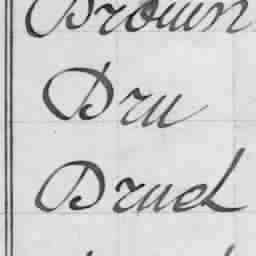 Brown
Dru
Druck